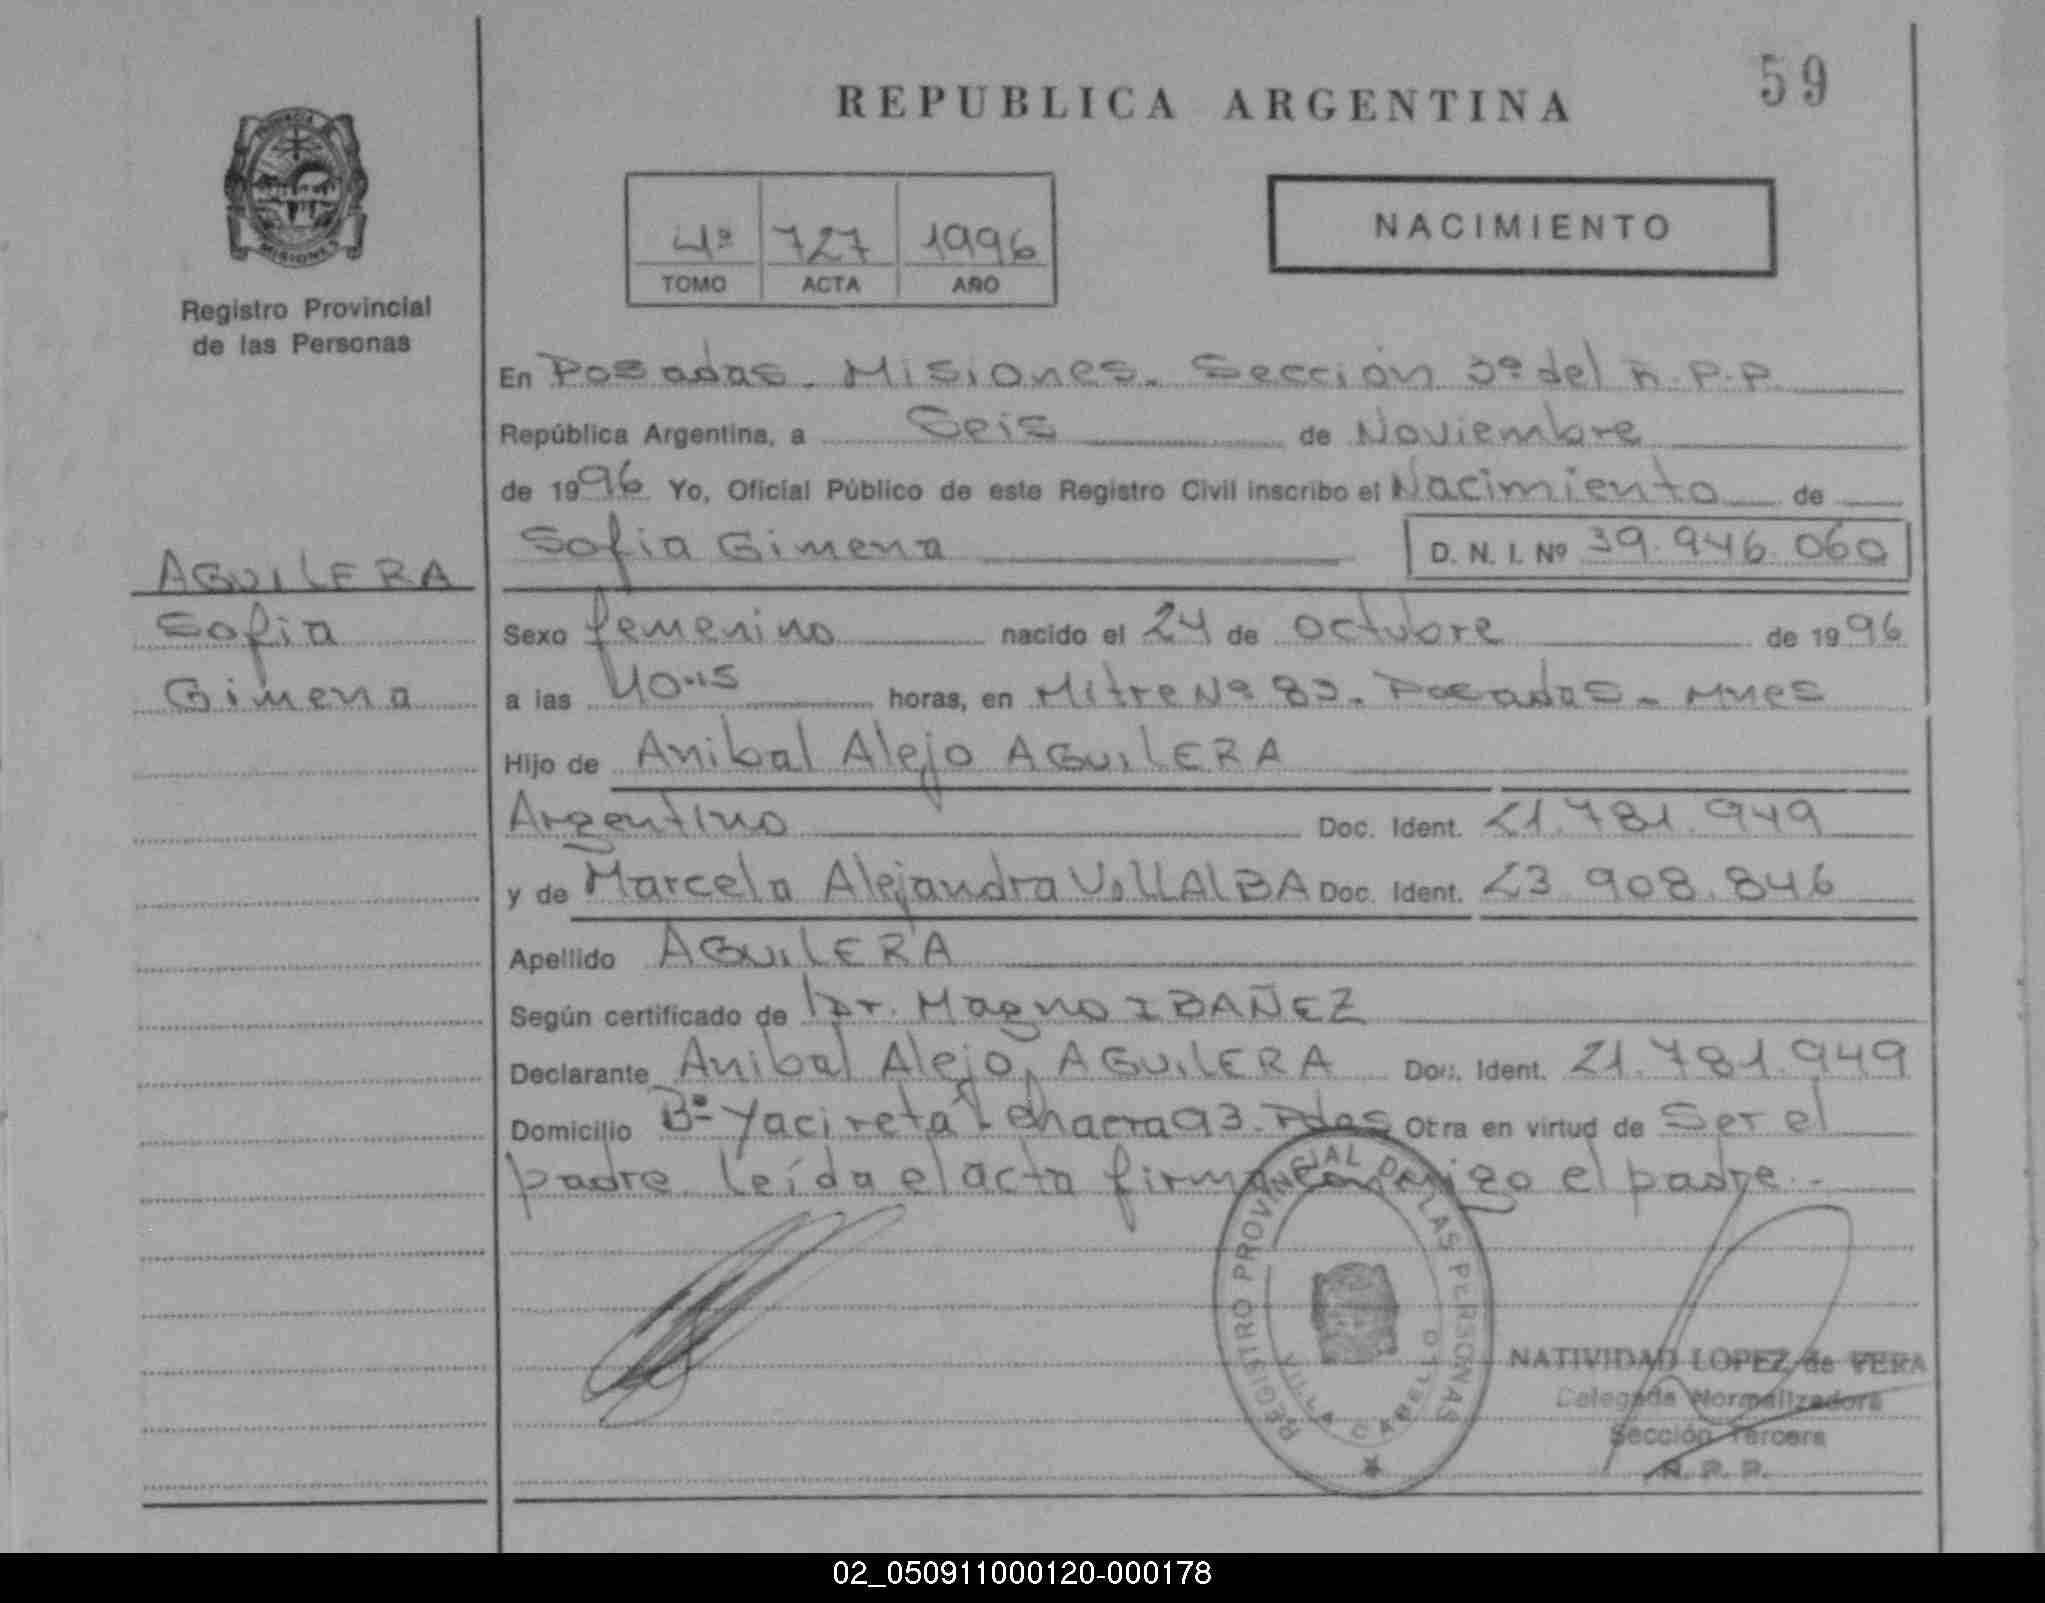 59
REPUBLICA ARGENTINA
PROVINCIA
MISIONES
Registro Provincial
de las Personas
4º 727 1996
TOMO ACTA AÑO
NACIMIENTO
En Posadas. Misiones. Sección 3º del R.P.P.
República Argentina, a Seis de Noviembre
de 1996 Yo, Oficial Público de este Registro Civil inscribo el Nacimiento de
Sofia Gimena D. N. I. Nº 39.946.060
AGUILERA
Sofia
Gimena
Sexo femenino nacido el 24 de octubre de 1996
a las horas, en Mitre Nº 83. Posadas - Mnes
Hijo de Anibal Alejo AGUILERA
Argentino Doc. Ident. 21.781.949
y de Marcela Alejandra VILLALBA Doc. Ident. 23.908.846
Apellido AGUILERA
Según certificado de Dr. Magno IBAÑEZ
Declarante Anibal Alejo AGUILERA Doc. Ident. 21.781.949
Domicilio Bº Yacireta chacra 93. Pdas Otra en virtud de Ser el
padre. Leída el acta firma conmigo el padre.-
REGISTRO PROVINCIAL DE LAS PERSONAS
VILLA CABELLO
NATIVIDAD LOPEZ de VERA
Delegada Normalizadora
Sección Tercera
R. P. P.
02_050911000120-000178